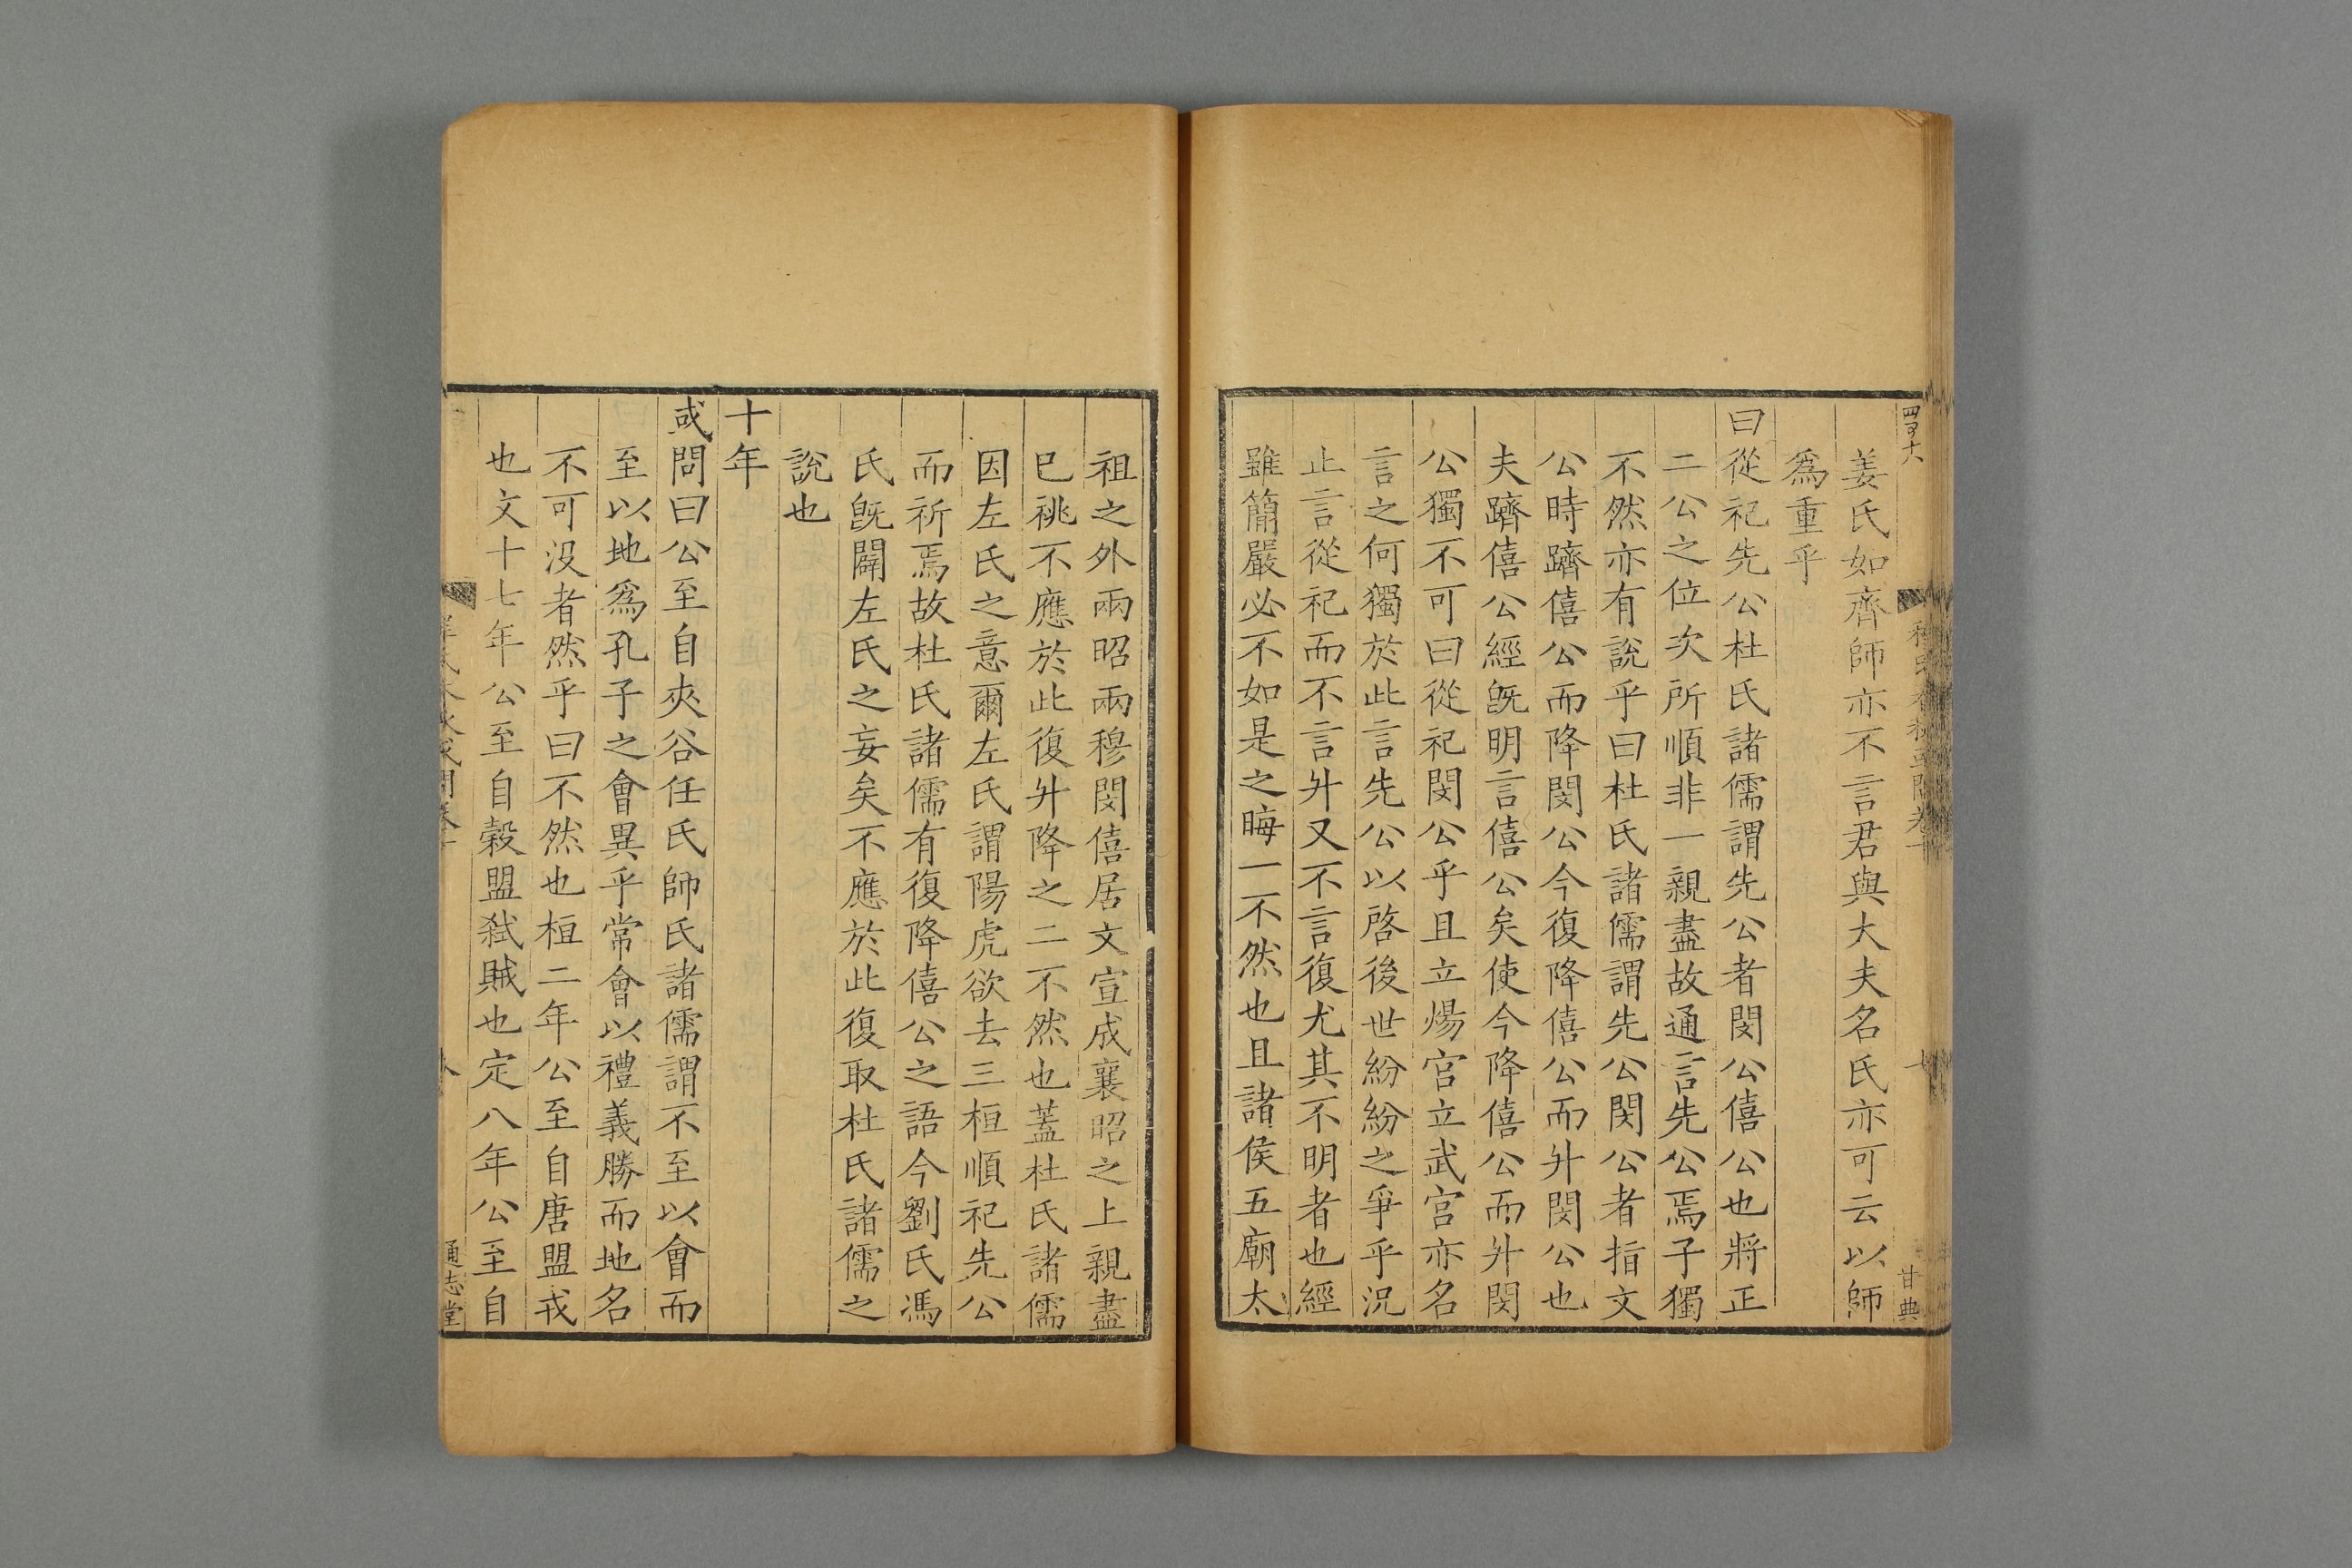 姜氏如齊師亦不言君與大夫名氏亦可云以師
爲重乎
曰從祀先公杜氏諸儒謂先公者閔公僖公也將正
二公之位次所順非一親盡故通言先公焉子獨
不然亦有說乎曰杜氏諸儒謂先公閔公者指文
公時躋僖公而降閔公今復降僖公而升閔公也
夫躋僖公經旣明言僖公矣使今降僖公而升閔
公獨不可曰從祀閔公乎且立煬宮立武宮亦名
言之何獨於此言先公以啓後世紛紛之爭乎況
止言從祀而不言升又不言復尤其不明者也經
雖簡嚴必不如是之晦一不然也且諸侯五廟太
祖之外兩昭兩穆閔僖居文宣成襄昭之上親盡
巳祧不應於此復升降之二不然也蓋杜氏諸儒
因左氏之意爾左氏謂陽虎欲去三桓順祀先公
而祈焉故杜氏諸儒有復降僖公之語今劉氏馮
氏旣闢左氏之妄矣不應於此復取杜氏諸儒之
說也
十年
或問曰公至自夾谷任氏師氏諸儒謂不至以會而
至以地爲孔子之會異乎常會以禮義勝而地名
不可沒者然乎曰不然也桓二年公至自唐盟戎
也文十七年公至自穀盟弑賊也定八年公至自
通志堂
甘典